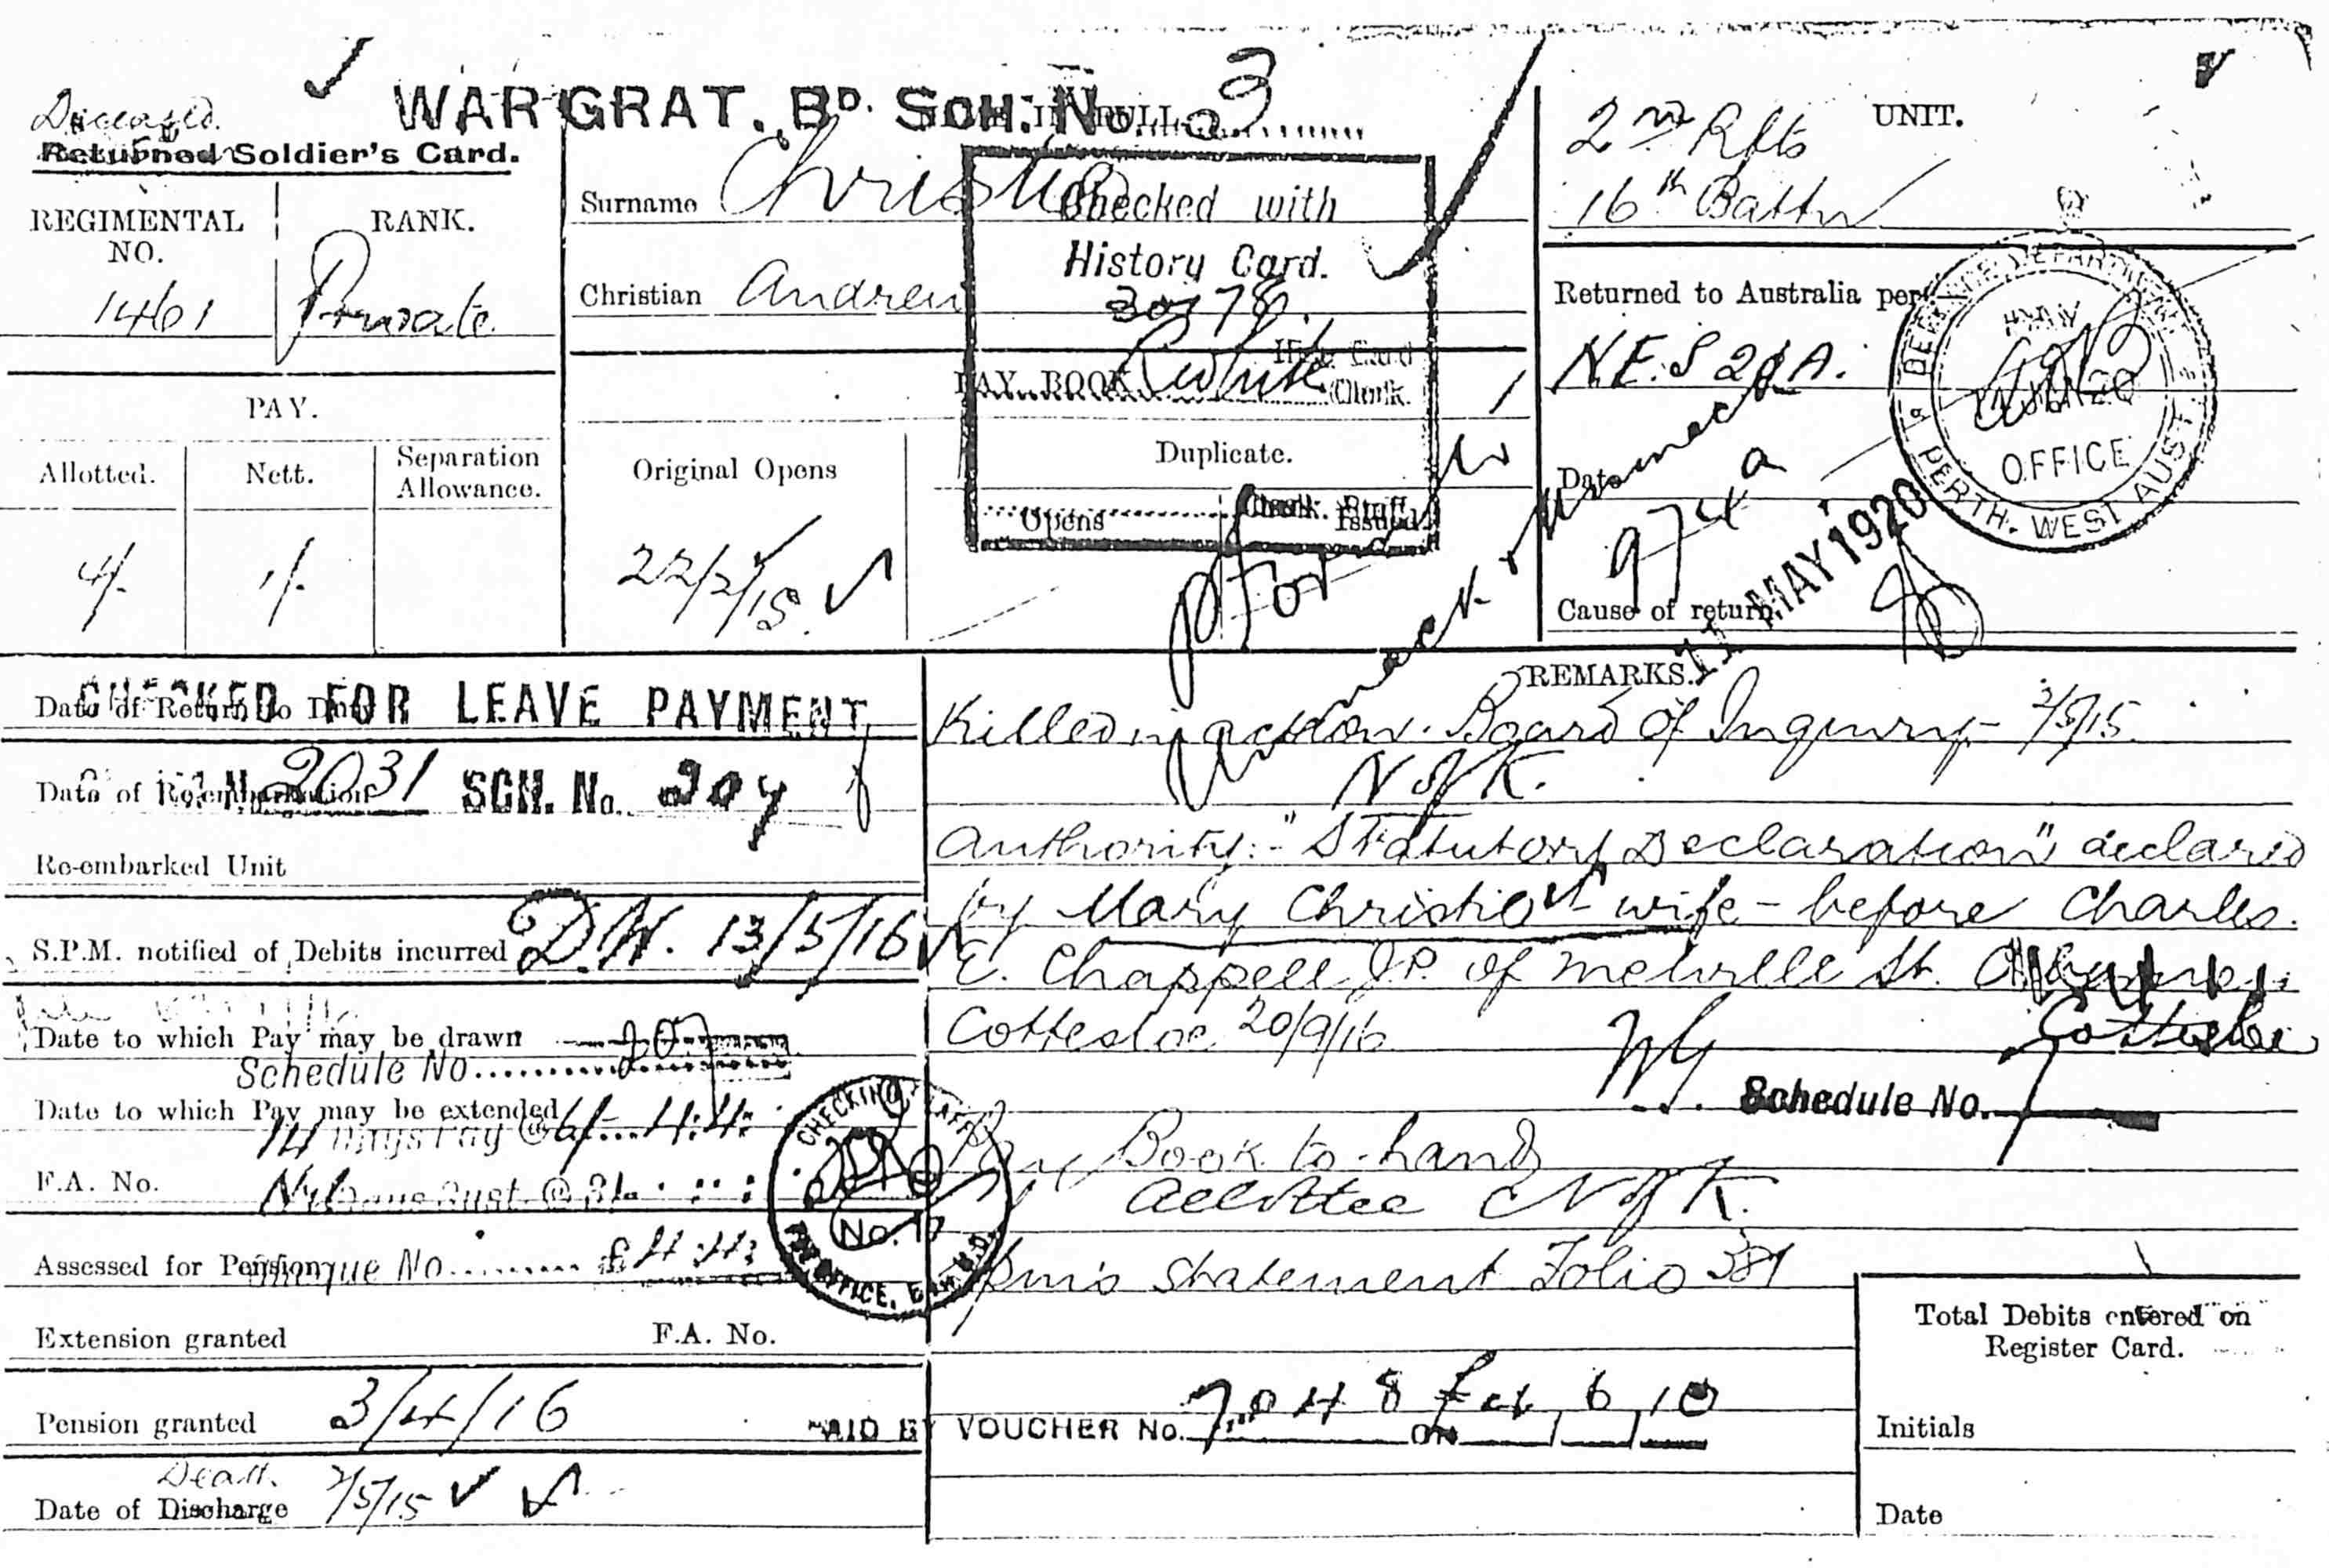 Deceased
WAR GRAT. BD. SCH. No. 3
Returned Soldier's Card.
REGIMENTAL NO.
1461
RANK.
Private
Surname Christie
Christian Andrew
Checked with
History Card.
Hist. Card
Clerk.
PAY BOOK
UNIT.
2nd Rfts
16th Battn
Returned to Australia per
DEFENCE DEPARTMENT
OFFICE
PERTH. WEST AUST.
Date
974a
11 MAY 1920
Cause of return
PAY.
Allotted.
Nett.
Separation Allowance.
4/-
1/-
Original Opens
22/2/15
Duplicate.
Opens
Issued
CHECKED FOR LEAVE PAYMENT
Date of Return to Duty
2031 SCH. No. 207
Date of Re-embarkation
Re-embarked Unit
S.P.M. notified of Debits incurred D.W. 13/5/16
Date to which Pay may be drawn
Schedule No. 207
Date to which Pay may be extended
14 Days Pay @ 6/- 4:4:
F.A. No.
CHECKING STAFF
PAY OFFICE,
Assessed for Pension
£4:4:
Extension granted F.A. No.
Pension granted 3/4/16
Death
Date of Discharge 2/5/15
REMARKS.
Killed in action. Board of Inquiry 2/5/15
N of K.
Authority:- "Statutory Declaration" declared
by Mary Christie wife - before Charles
E. Chappell J.P. of Melville St.
Cottesloe 20/9/16
Cottesloe
Schedule No. 7
Pay Book to hand
Allottee N of K.
Statement Folio 381
PAID BY VOUCHER No.
ON
Total Debits entered on
Register Card.
Initials
Date